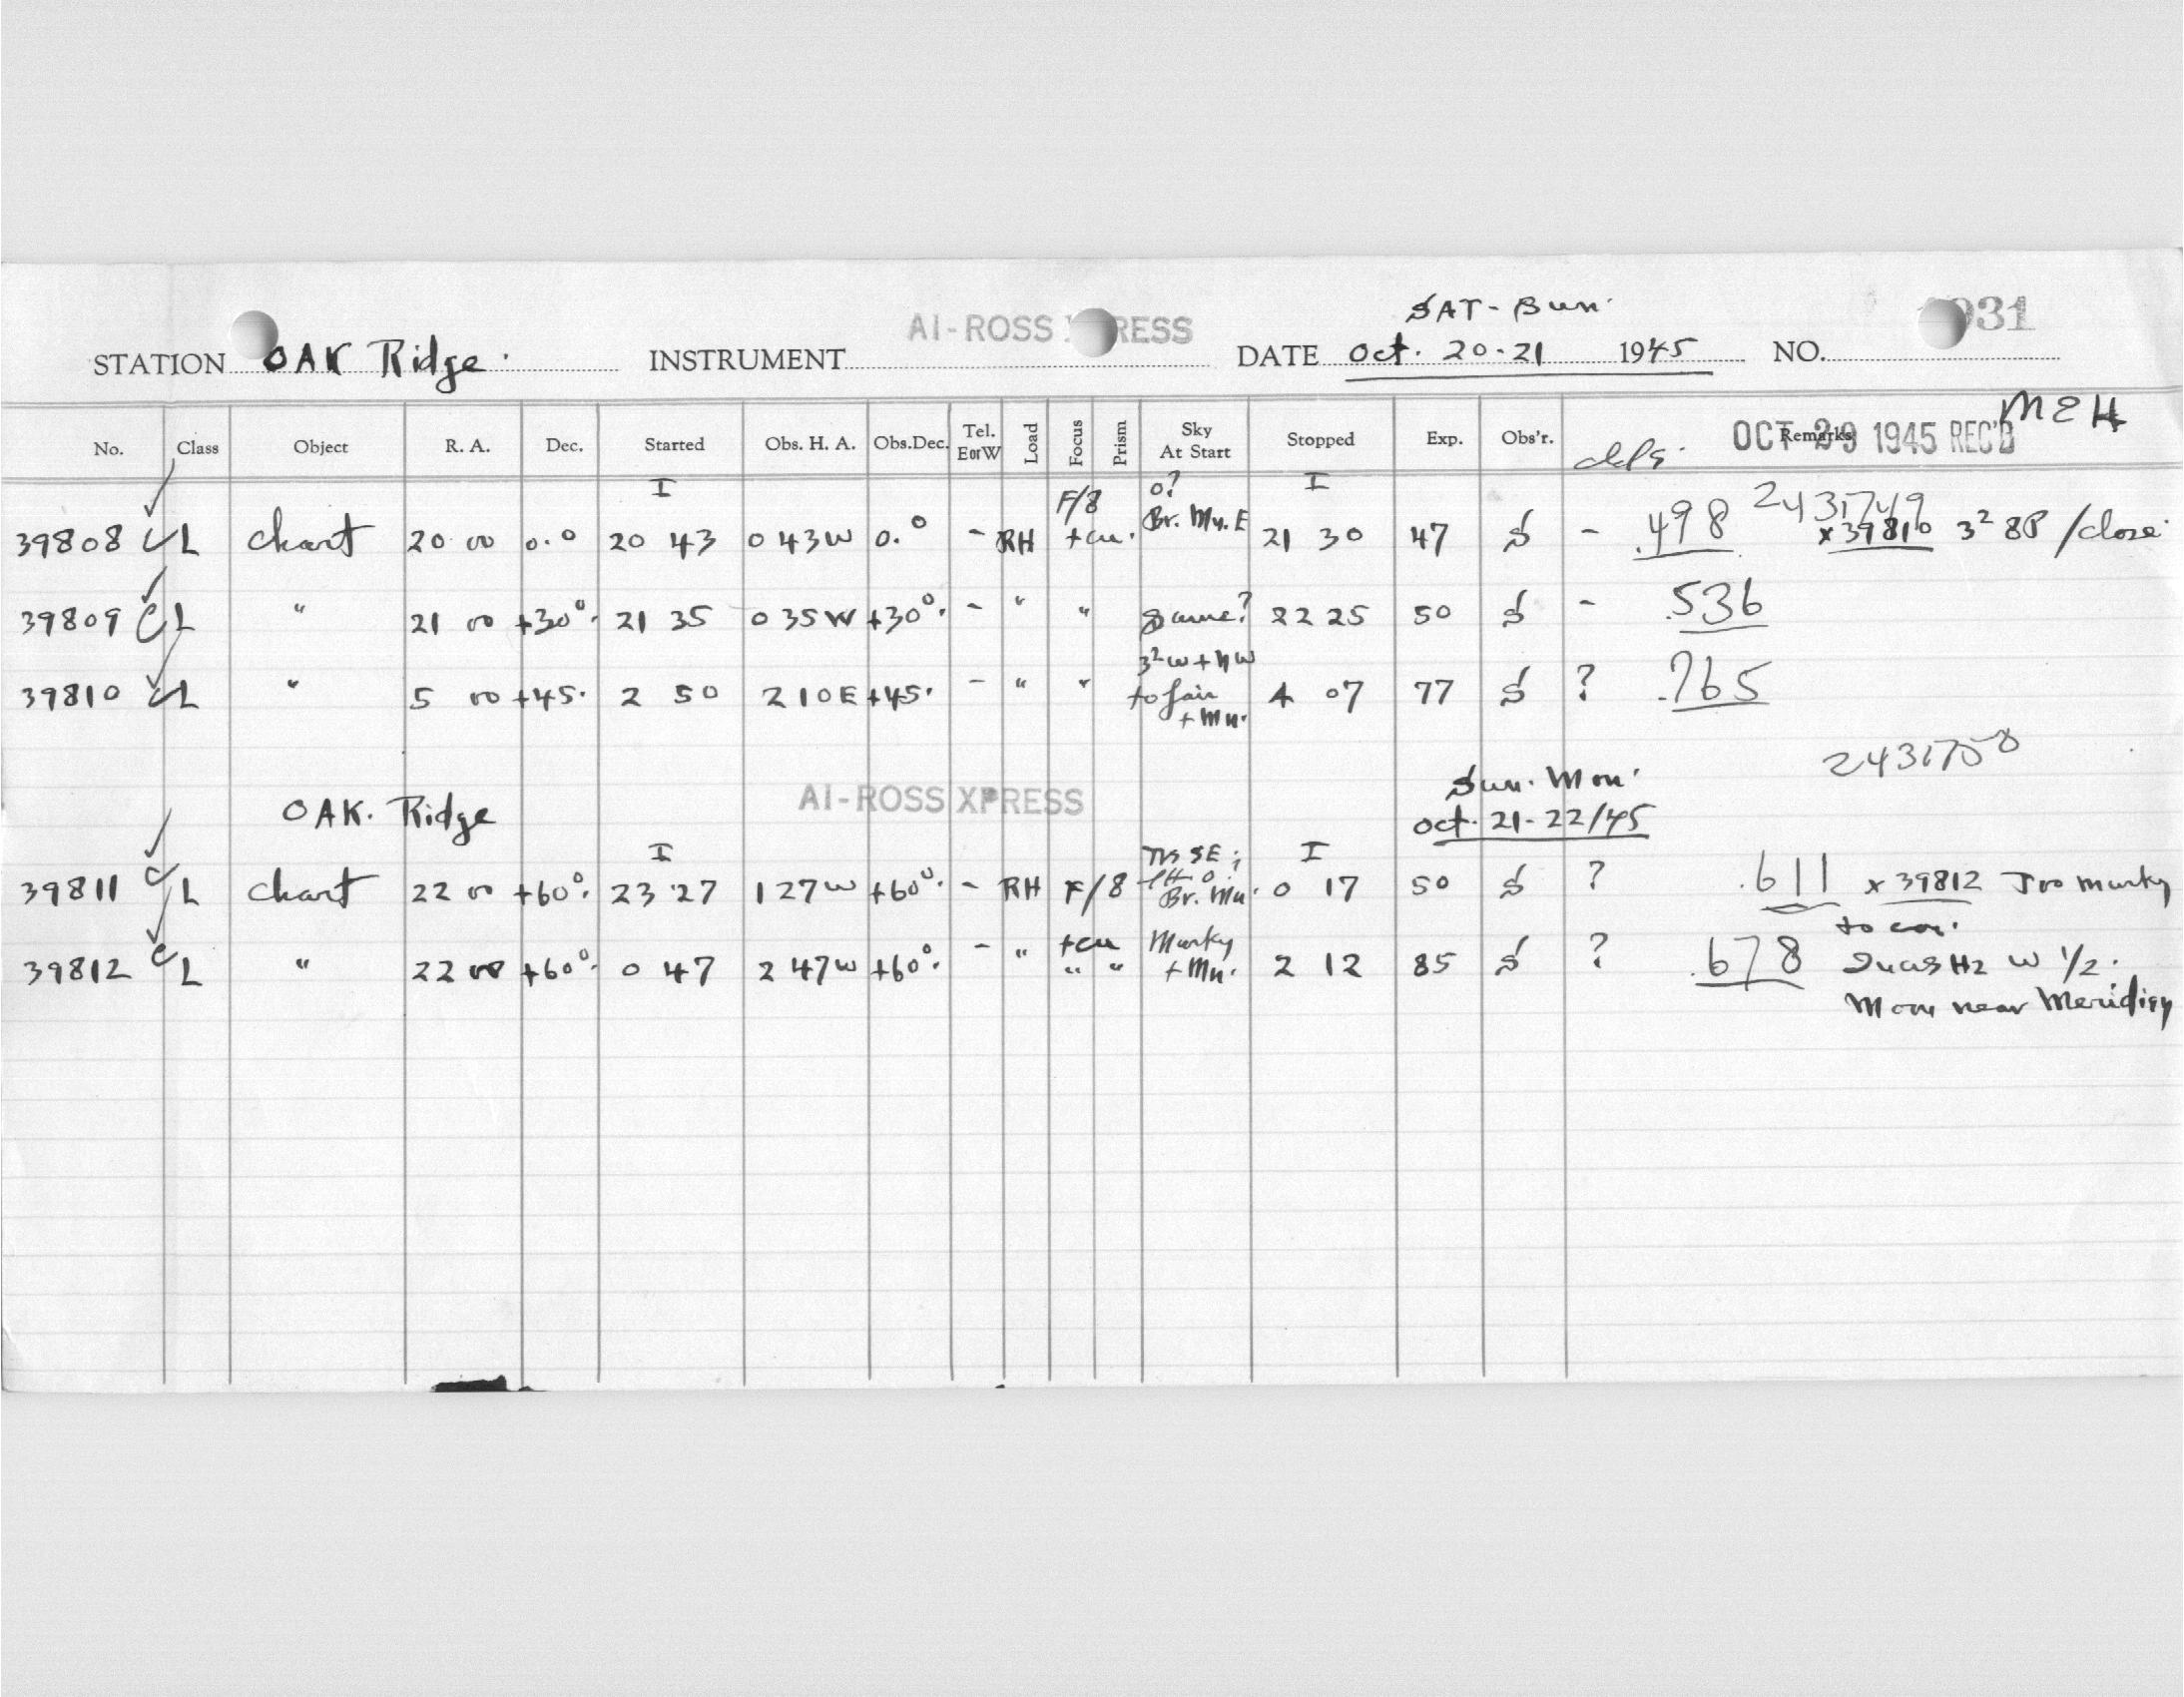 SAT - Sun.
AI-ROSS XPRESS 931
STATION OAK Ridge. INSTRUMENT DATE Oct. 20-21 1945 NO.
MEH
No. Class Object R. A. Dec. Started Obs. H. A. Obs.Dec. Tel. E or W Load Focus Prism Sky At Start Stopped Exp. Obs'r. Remarks OCT 29 1945 REC'D
I F/8 o? I 2431749
39808 C L chart 20 00 0.° 20 43 0 43W 0.° - RH +cu. Br. Mn. E 21 30 47 S - .498 x 39810 3² 8P / close
39809 C L " 21 00 +30°. 21 35 0 35W +30°. - " " same? 22 25 50 S - .536
3² W + NW
39810 C L " 5 00 +45. 2 50 2 10E +45. - " " to fair 4 07 77 S ? .765
+ Mn.
2431750
Sun. Mon.
OAK. Ridge AI-ROSS XPRESS Oct. 21-22/45
I SE; I
39811 C L chart 22 00 +60°. 23 27 1 27W +60°. - RH F/8 Br. Mn. 0 17 50 S ? .611 x 39812 Too murky
+cu Murky to con.
39812 C L " 22 00 +60°. 0 47 2 47W +60°. - " " " + Mn. 2 12 85 S ? .678 W 1/2.
Moon near Meridian